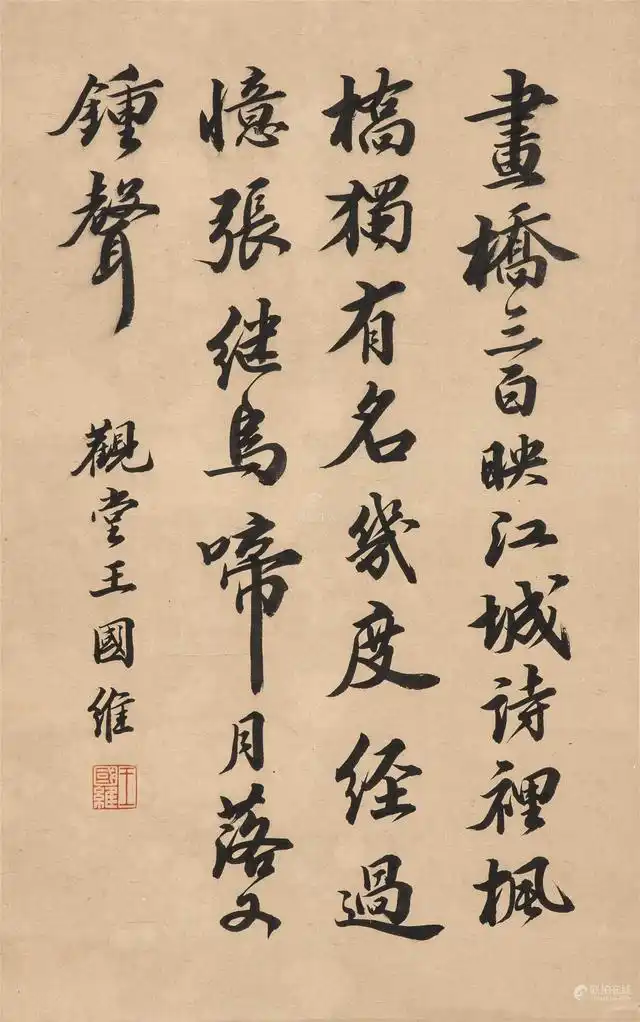 畫橋三百映江城詩裡楓
橋獨有名幾度經過
憶張繼烏啼月落又
鍾聲
觀堂王國維
王國維